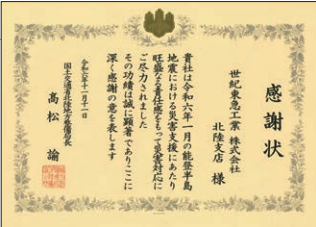 感謝状
世紀東急工業 株式会社
北陸支店 様
貴社は令和六年一月の能登半島
地震における災害支援にあたり
旺盛なる責任感をもって災害対応に
ご尽力されました
その功績は誠に顕著でありここに
深く感謝の意を表します
令和六年十一月十一日
国土交通省北陸地方整備局長
髙松 諭